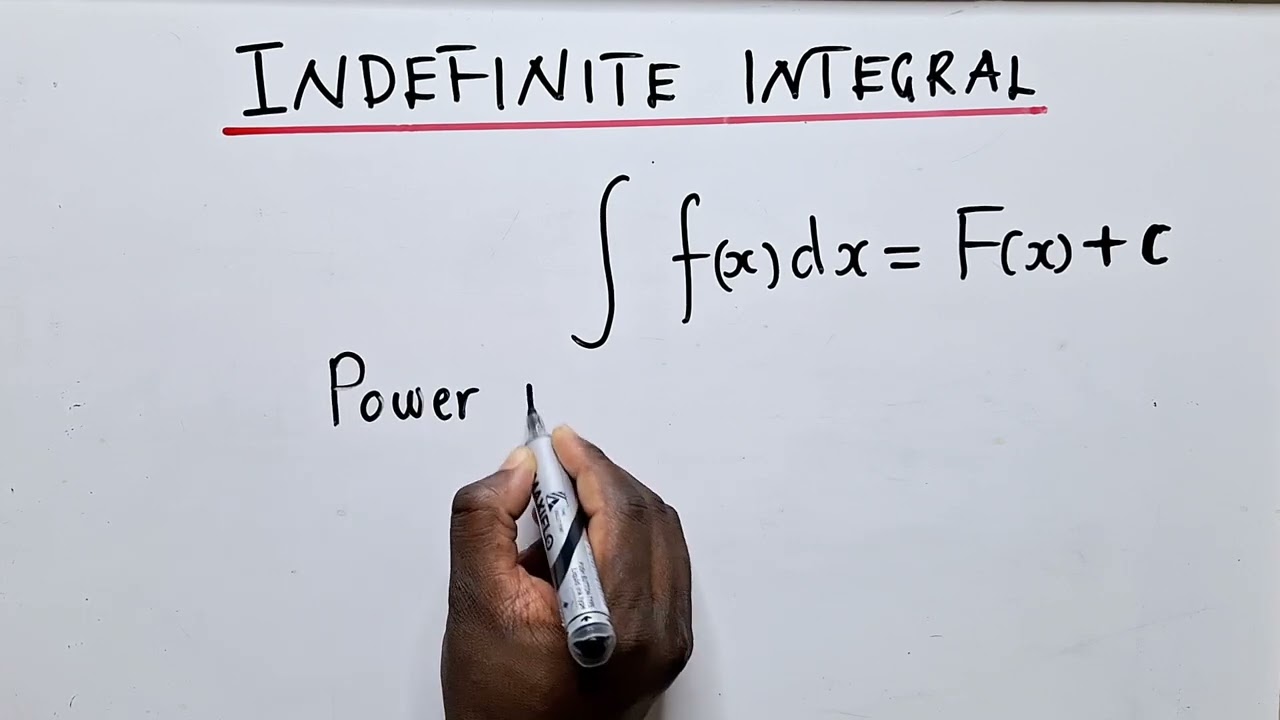 INDEFINITE INTEGRAL
∫ f(x) dx = F(x) + c
Power
MAXIFLO